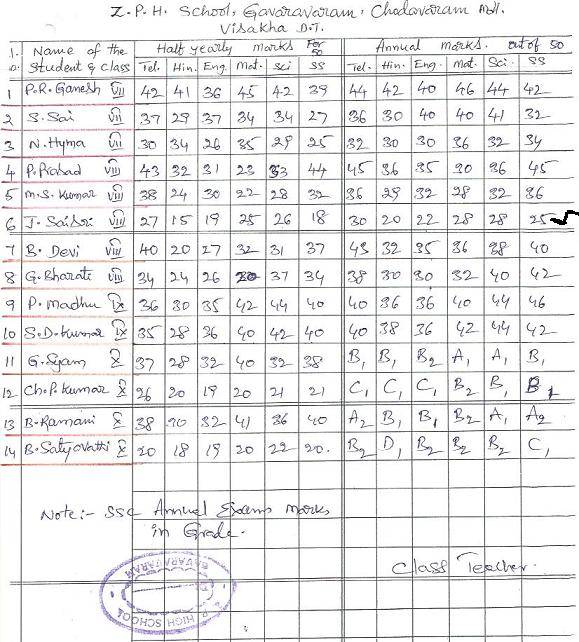 Z.P.H. School, Gavaravaram, Chodavaram Mdl.
Visakha DT.
Name of the Student & Class Half yearly marks For 50 Annual marks. out of 50
Tel. Hin. Eng. Mat. Sci SS Tel. Hin. Eng. Mat. Sci. SS
1 P.R. Ganesh VII 42 41 36 45 42 39 44 42 40 46 44 42
2 S. Sai VII 37 29 37 34 34 27 36 30 40 40 41 32
3 N. Hyma VII 30 34 26 35 29 25 32 30 30 36 32 34
4 P. Prasad VII 43 32 31 23 33 44 45 36 35 30 36 45
5 M.S. Kumar VII 38 24 30 22 28 32 36 29 32 28 32 36
6 J. SaiSri VIII 27 15 19 25 26 18 30 20 22 28 28 25
7 B. Devi VIII 40 20 27 32 31 37 43 32 35 36 38 40
8 G. Bharati VIII 34 24 26 30 37 34 38 30 30 32 40 42
9 P. Madhu IX 36 30 35 42 44 40 40 36 36 40 44 46
10 S.D. Kumar IX 35 28 36 40 42 40 40 38 36 42 44 42
11 G. Syam X 37 28 32 40 32 38 B1 B1 B2 A1 A1 B1
12 Ch.P. Kumar X 26 20 19 20 21 21 C1 C1 C1 B2 B1 B1
13 B. Ramani X 38 20 32 41 36 40 A2 B1 B1 B2 A1 A2
14 B. Satyavathi X 20 18 19 20 22 20. B2 D1 B2 B2 B2 C1
Note:- SSC Annual Exams marks
in Grade.
Class Teacher.
HIGH SCHOOL
GAVARAVARAM